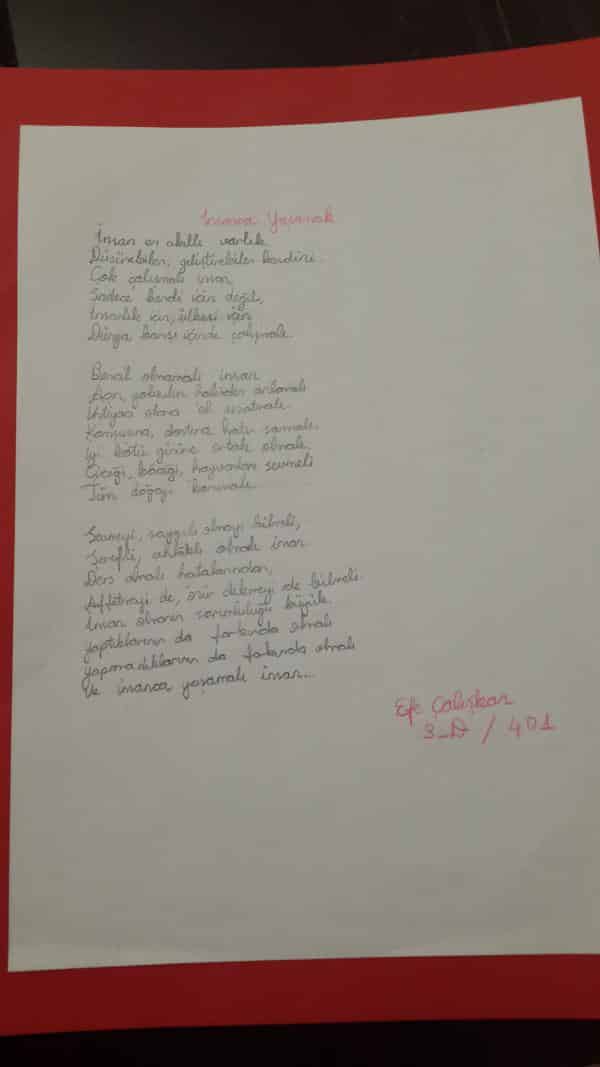 İnsanca Yaşamak
İnsan en akıllı varlık
Düşünebilen, geliştirebilen kendini.
Çok çalışmalı insan,
Sadece kendi için değil,
İnsanlık için, ülkesi için
Dünya barışı içinde çalışmalı.
Bencil olmamalı insan
Açın, yoksulun halinden anlamalı
İhtiyacı olana el uzatmalı.
Komşusuna, dostuna hatır sormalı.
İyi kötü gününe ortak olmalı.
Çiçeği, böceği, hayvanları sevmeli
Tüm doğayı korumalı.
Sevmeyi, saygılı olmayı bilmeli,
Şerefli, ahlaklı olmalı insan
Ders almalı hatalarından,
Affetmeyi de, özür dilemeyi de bilmeli.
İnsan olmanın sorumluluğu büyük.
yaptıklarının da farkında olmalı
yapmadıklarının da farkında olmalı
Ve insanca yaşamalı insan...
Efe Çalışkan
3-D / 401